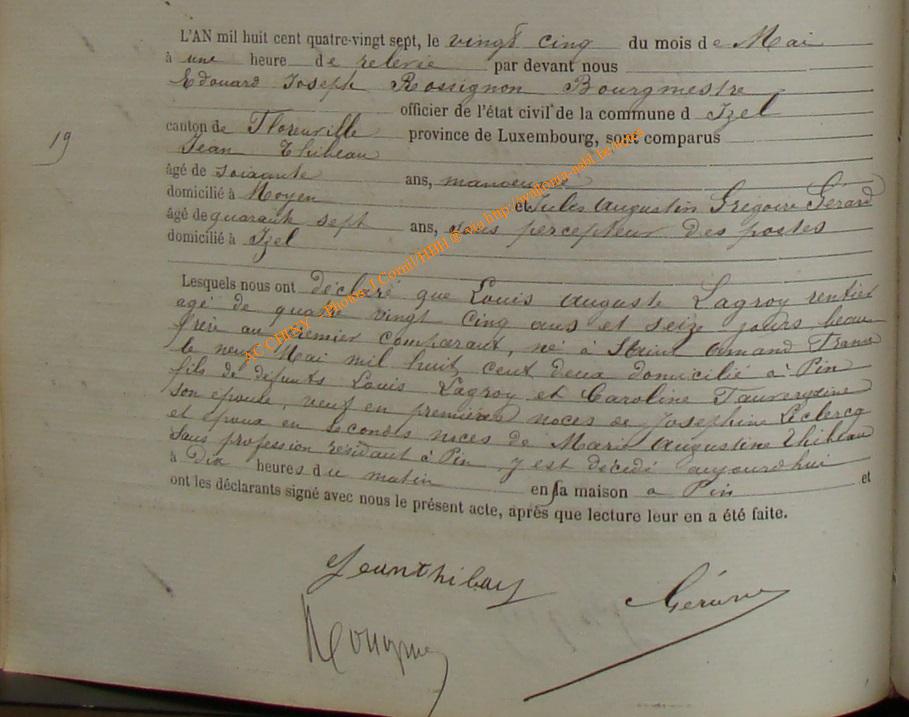 L'AN mil huit cent quatre-vingt sept, le vingt cinq du mois de Mai
à une heure de relevée par devant nous
Edouard Joseph Rossignon Bourgmestre
officier de l'état civil de la commune d Izel
canton de Florenville province de Luxembourg, sont comparus
19
Jean Thibeau
âgé de soixante ans, manoeuvre
domicilié à Moyen et Jules Augustin Grégoire Gérard
âgé de quarante sept ans, sous percepteur des postes
domicilié à Izel
Lesquels nous ont déclaré que Louis Auguste Lagroy rentier
agé de quatre vingt cinq ans et seize jours, beau
frère au premier comparant, né à Saint Amand France
le neuf Mai mil huit cent deux domicilié à Pin
fils de défunts Louis Lagroy et Caroline
son épouse, veuf en premières noces de Josephine Leclercq
et époux en secondes noces de Marie Augustine Thibeau
sans profession résidant à Pin, y est décédé aujourd'hui
à Dix heures du matin en sa maison à Pin et
ont les déclarants signé avec nous le présent acte, après que lecture leur en a été faite.
ACCHINY - Photos J Cornil/HBH @ via http://waltonia-asbl.be/dites
Jean Thibeau
Gérard